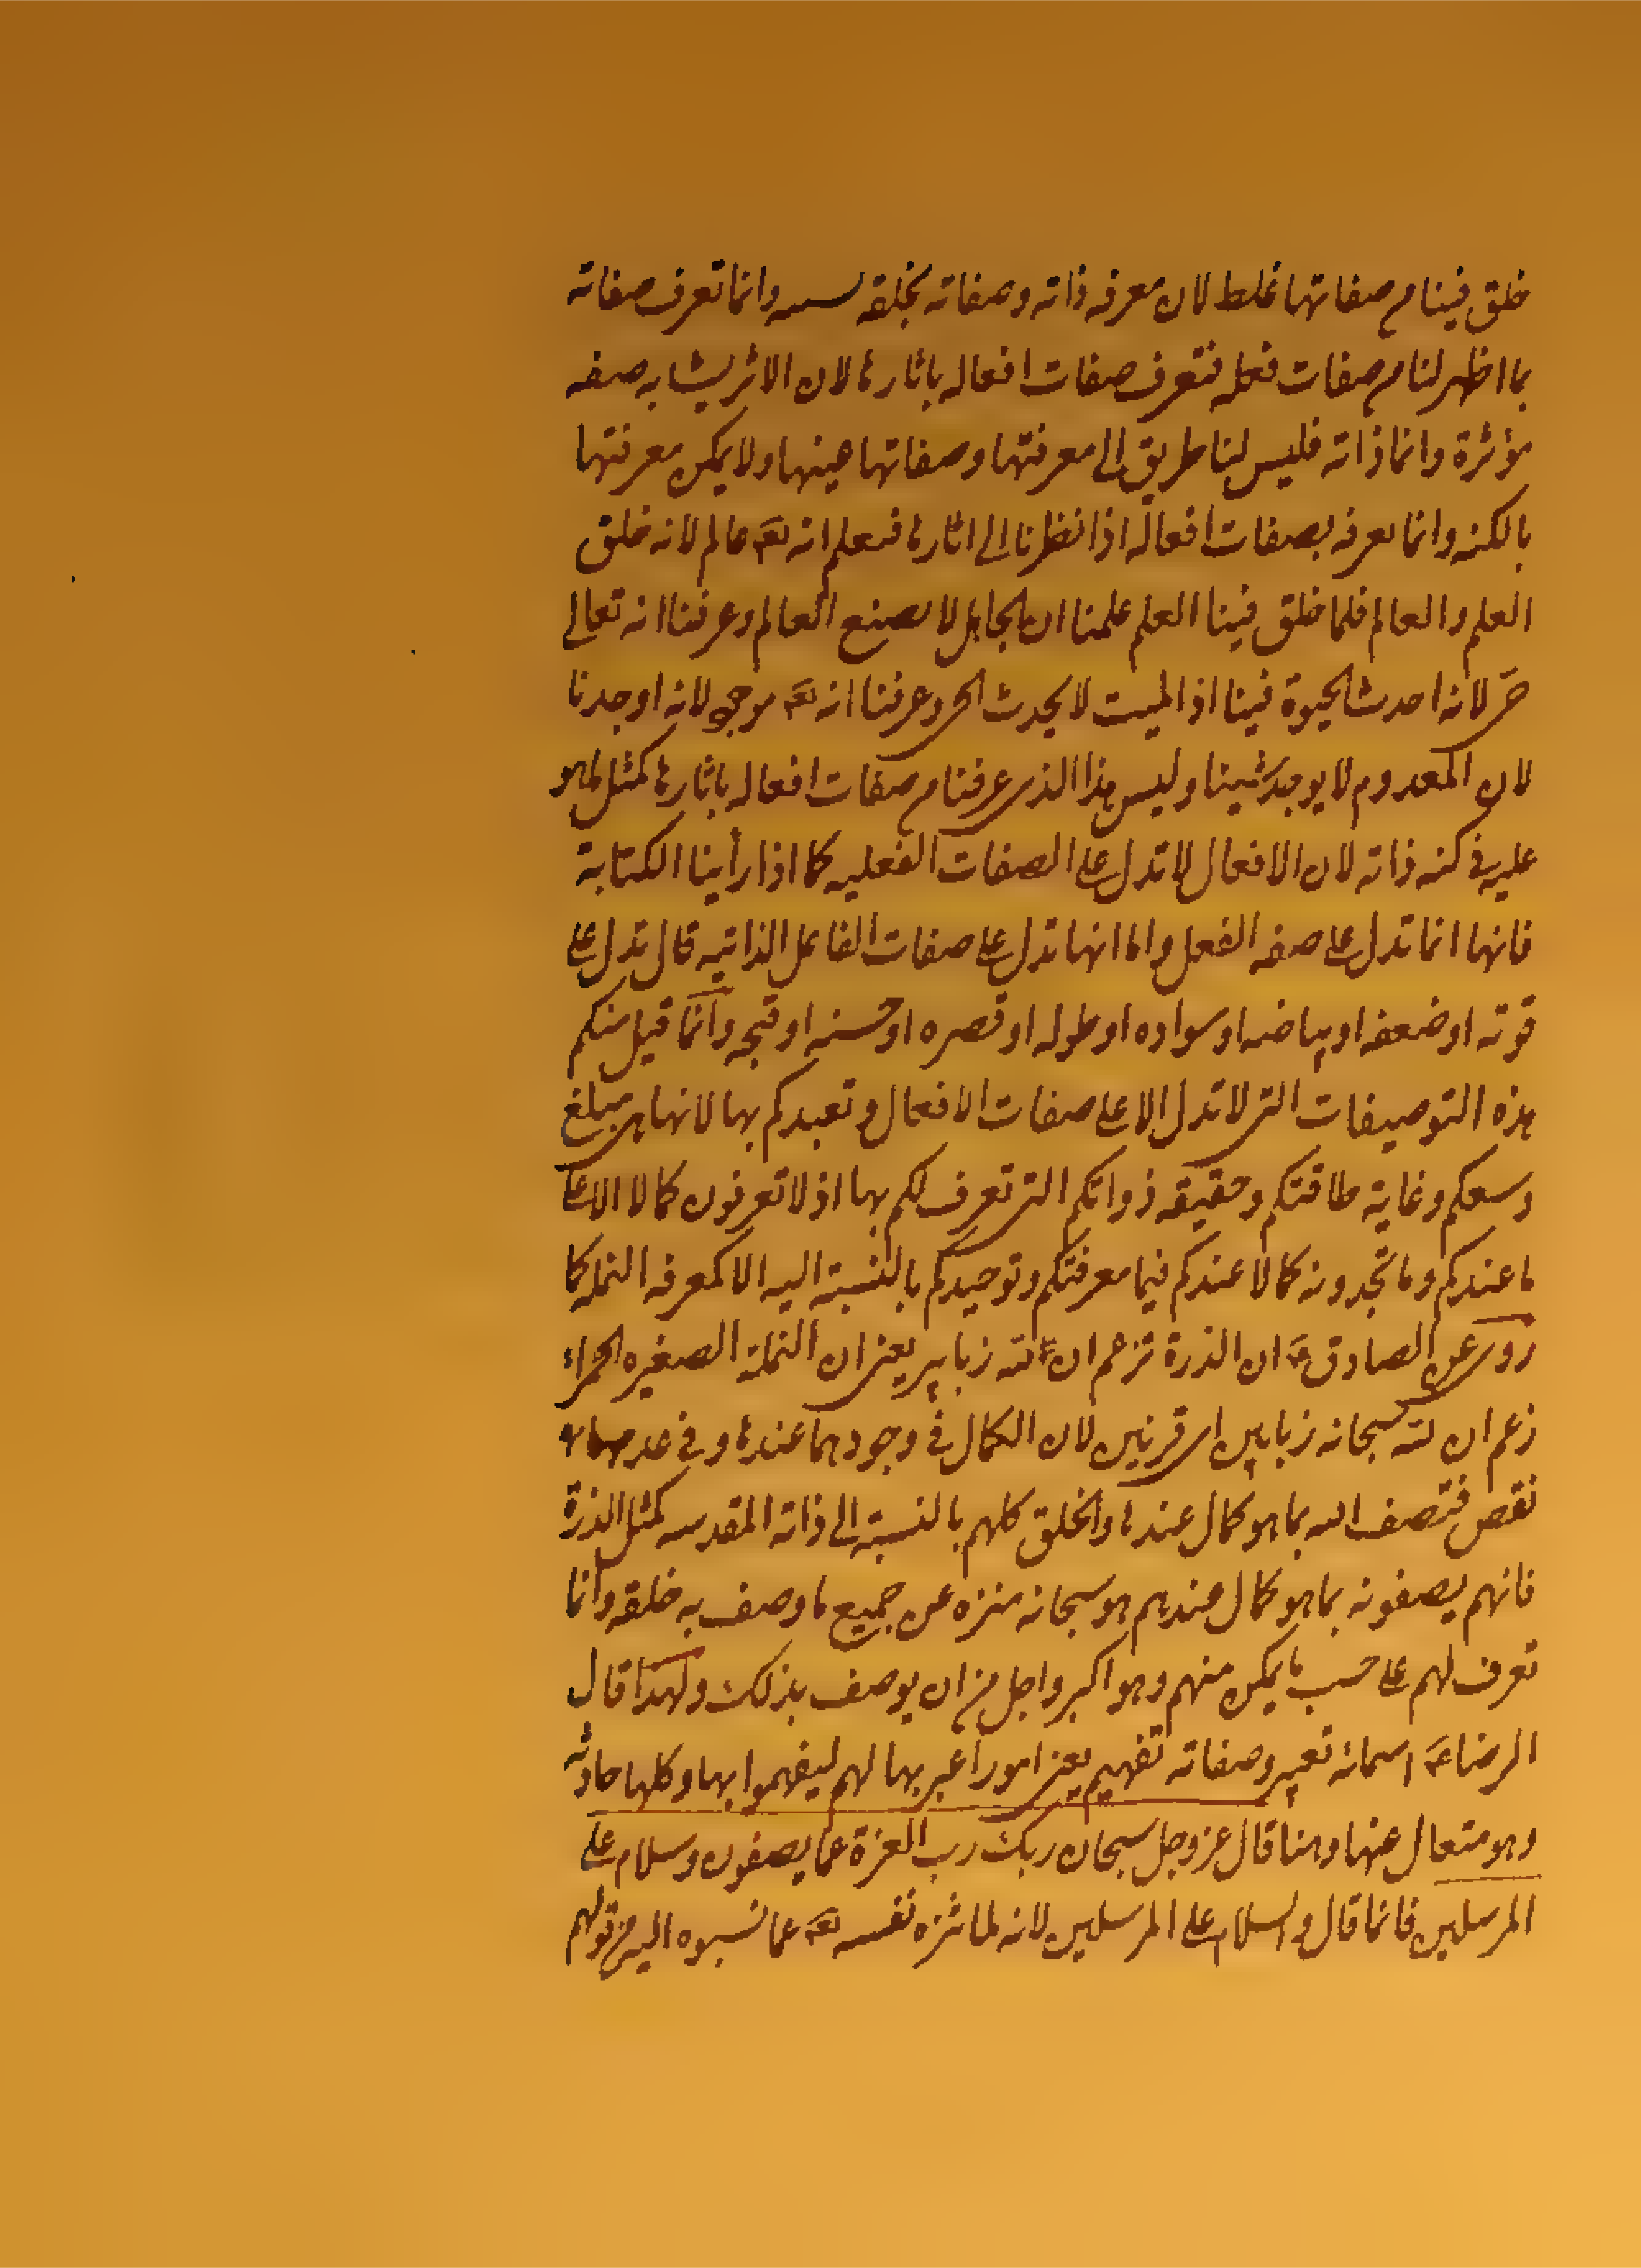 خلق فينا من صفاتها غلط لان معرفه ذاته وصفاته بخلقه وانما تعرف صفاته
بما اظهر لنا من صفات فعله فتعرف صفات افعاله باثارها لان الاثر يشابه صفه
مؤثرة وانما ذاته فليس لنا طريق الى معرفتها وصفاتها عينها ولا يمكن معرفتها
بالكنه وانما نعرفه بصفات افعاله اذا نظرنا الى اثارها فنعلم انه تعہ عالم لانه خلق
العلم والعالم فلما خلق فينا العلم علمنا ان الجاهل لا يصنع العالم وعرفنا انه تعالى
حى لانه احدث الحيوة فينا اذ الميت لا يحدث الحى وعرفنا انه تعہ موجود لانه اوجدنا
لان المعدوم لا يوجد شيئا وليس هذا الذى عرفنا من صفات افعاله باثارها كمثل لما هو
عليه فى كنه ذاته لان الافعال لا تدل على الصفات الفعليه كما اذا رأينا الكتابة
فانها انما تدل على صفه الفعل واما انها تدل على صفات الفاعل الذاتيه قال تدل على
قوته او ضعفه او بياضه او سواده او طوله او قصره او حسنه او قبحه وانما قبل منكم
هذه التوصيفات التى لا تدل الا على صفات الافعال وتعبدكم بها لانها هى مبلغ
وسعكم وغاية طاقتكم وحقيقه ذواتكم التى تعرف لكم بها اذ لا تعرفون كمالا الا على
ما عندكم وما تجدونه كمالا عندكم فيما معرفتكم وتوحيدكم بالنسبة اليه الا كمعرفه النمله كما
روى عن الصادق ع ان الذرة تزعم ان لله زبانيين يعنى ان النملة الصغيره الحمراء
تزعم ان لله سبحانه زبانيين اى قرنين لان الكمال فى وجودهما عندها وفى عدمهما
نقص فتصف الله بما هو كمال عندها والخلق كلهم بالنسبة الى ذاته المقدسه كمثل الذرة
فانهم يصفونه بما هو كمال عندهم هو سبحانه منزه عن جميع ما وصف به خلقه وانما
تعرف لهم على حسب ما يمكن منهم وهو اكبر واجل من ان يوصف بذلك ولهذا قال
الرضا ع اسمائه تعبير وصفاته تفهيم يعنى امورا عبر بها لهم ليفهموا بها وكلها حادثه
وهو متعال عنها وهنا قال عز وجل سبحان ربك رب العزة عما يصفون وسلام على
المرسلين فانما قال والسلام على المرسلين لانه لما نزه نفسه تعہ عما نسبوه اليه من قولهم